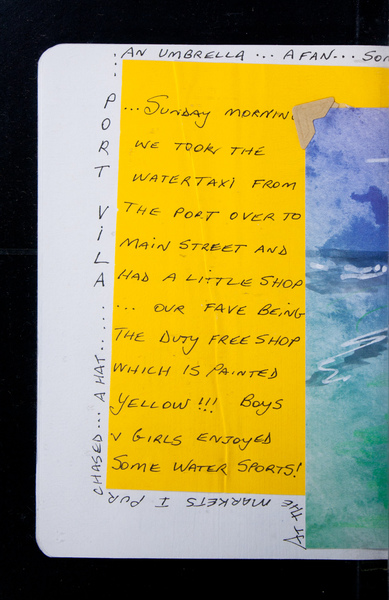 PORT VILA......
...SUNDAY MORNIN
WE TOOK THE
WATERTAXI FROM
THE PORT OVER TO
MAIN STREET AND
HAD A LITTLE SHOP
... OUR FAVE BEING
THE DUTY FREE SHOP
WHICH IS PAINTED
YELLOW!!! BOYS
v GIRLS ENJOYED
SOME WATER SPORTS!
AT THE MARKETS I PUR
CHASED... A HAT...
AN UMBRELLA... A FAN... SOM